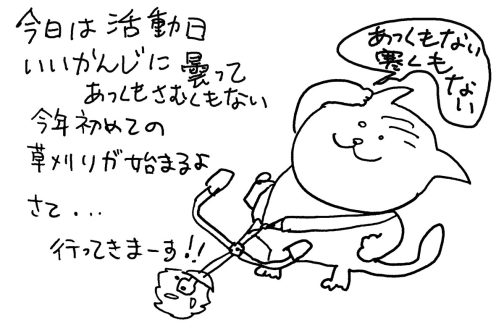 今日は活動日
いいかんじに曇って
あっくもさむくもない
今年初めての
草刈りが始まるよ
さて・・・
行ってきまーす!!
あっくもない
寒くも
ない